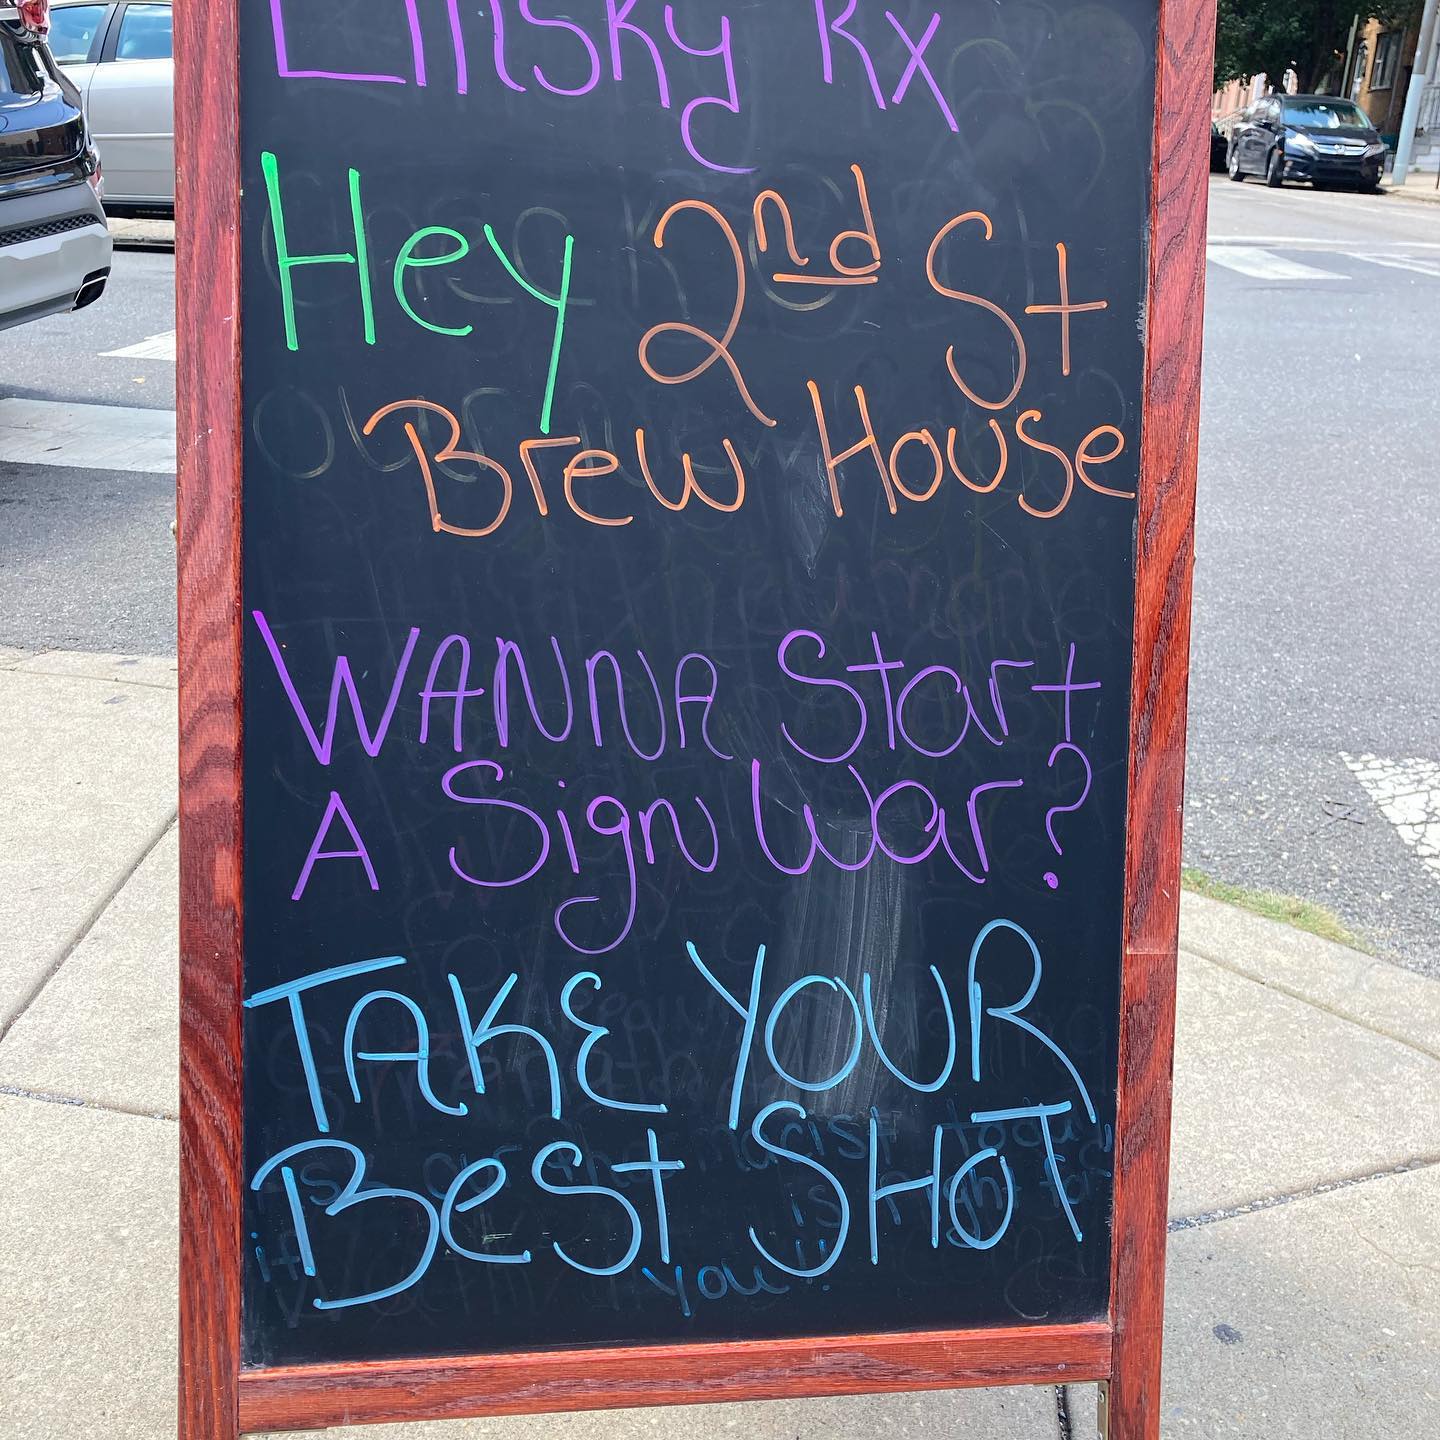 Linsky Rx
Hey 2nd St
Brew House
WANNA Start
A Sign War?
TAKE YOUR
BEST SHOT
you!!